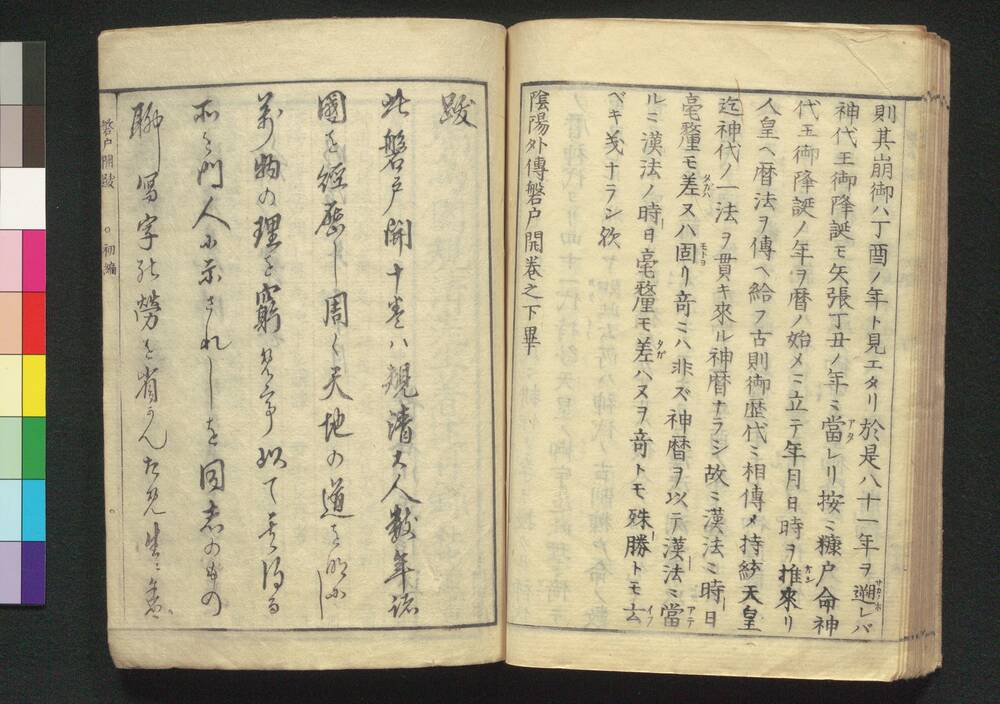 則其崩御ハ丁酉ノ年ト見エタリ於是八十一年ヲ遡レバ
神代王御降誕モ矢張丁丑ノ年ミ當レリ按ミ糠戸命神
代王御降誕ノ年ヲ暦ノ始メミ立テ年月日時ヲ推來リ
人皇ヘ暦法ヲ傳ヘ給フ古則御歴代ミ相傳メ持統天皇
迄神代ノ一法ヲ貫キ來ル神暦ナラン故ミ漢法ミ時日
毫釐モ差ヌハ固リ竒ミハ非ズ神暦ヲ以テ漢法ミ當
ルミ漢法ノ時日毫釐モ差ハヌヲ竒トモ殊勝トモ云
ベキ義ナラン歟
陰陽外傳磐戸開巻之下畢
跋
此磐戸開十巻ハ規清大人数年諸
國を經歴し周く天地の道を
萬物の理を窮
門人に示されしを同志のもの
聊冩字の勞を省かん
磐戸開跋 ○ 初編